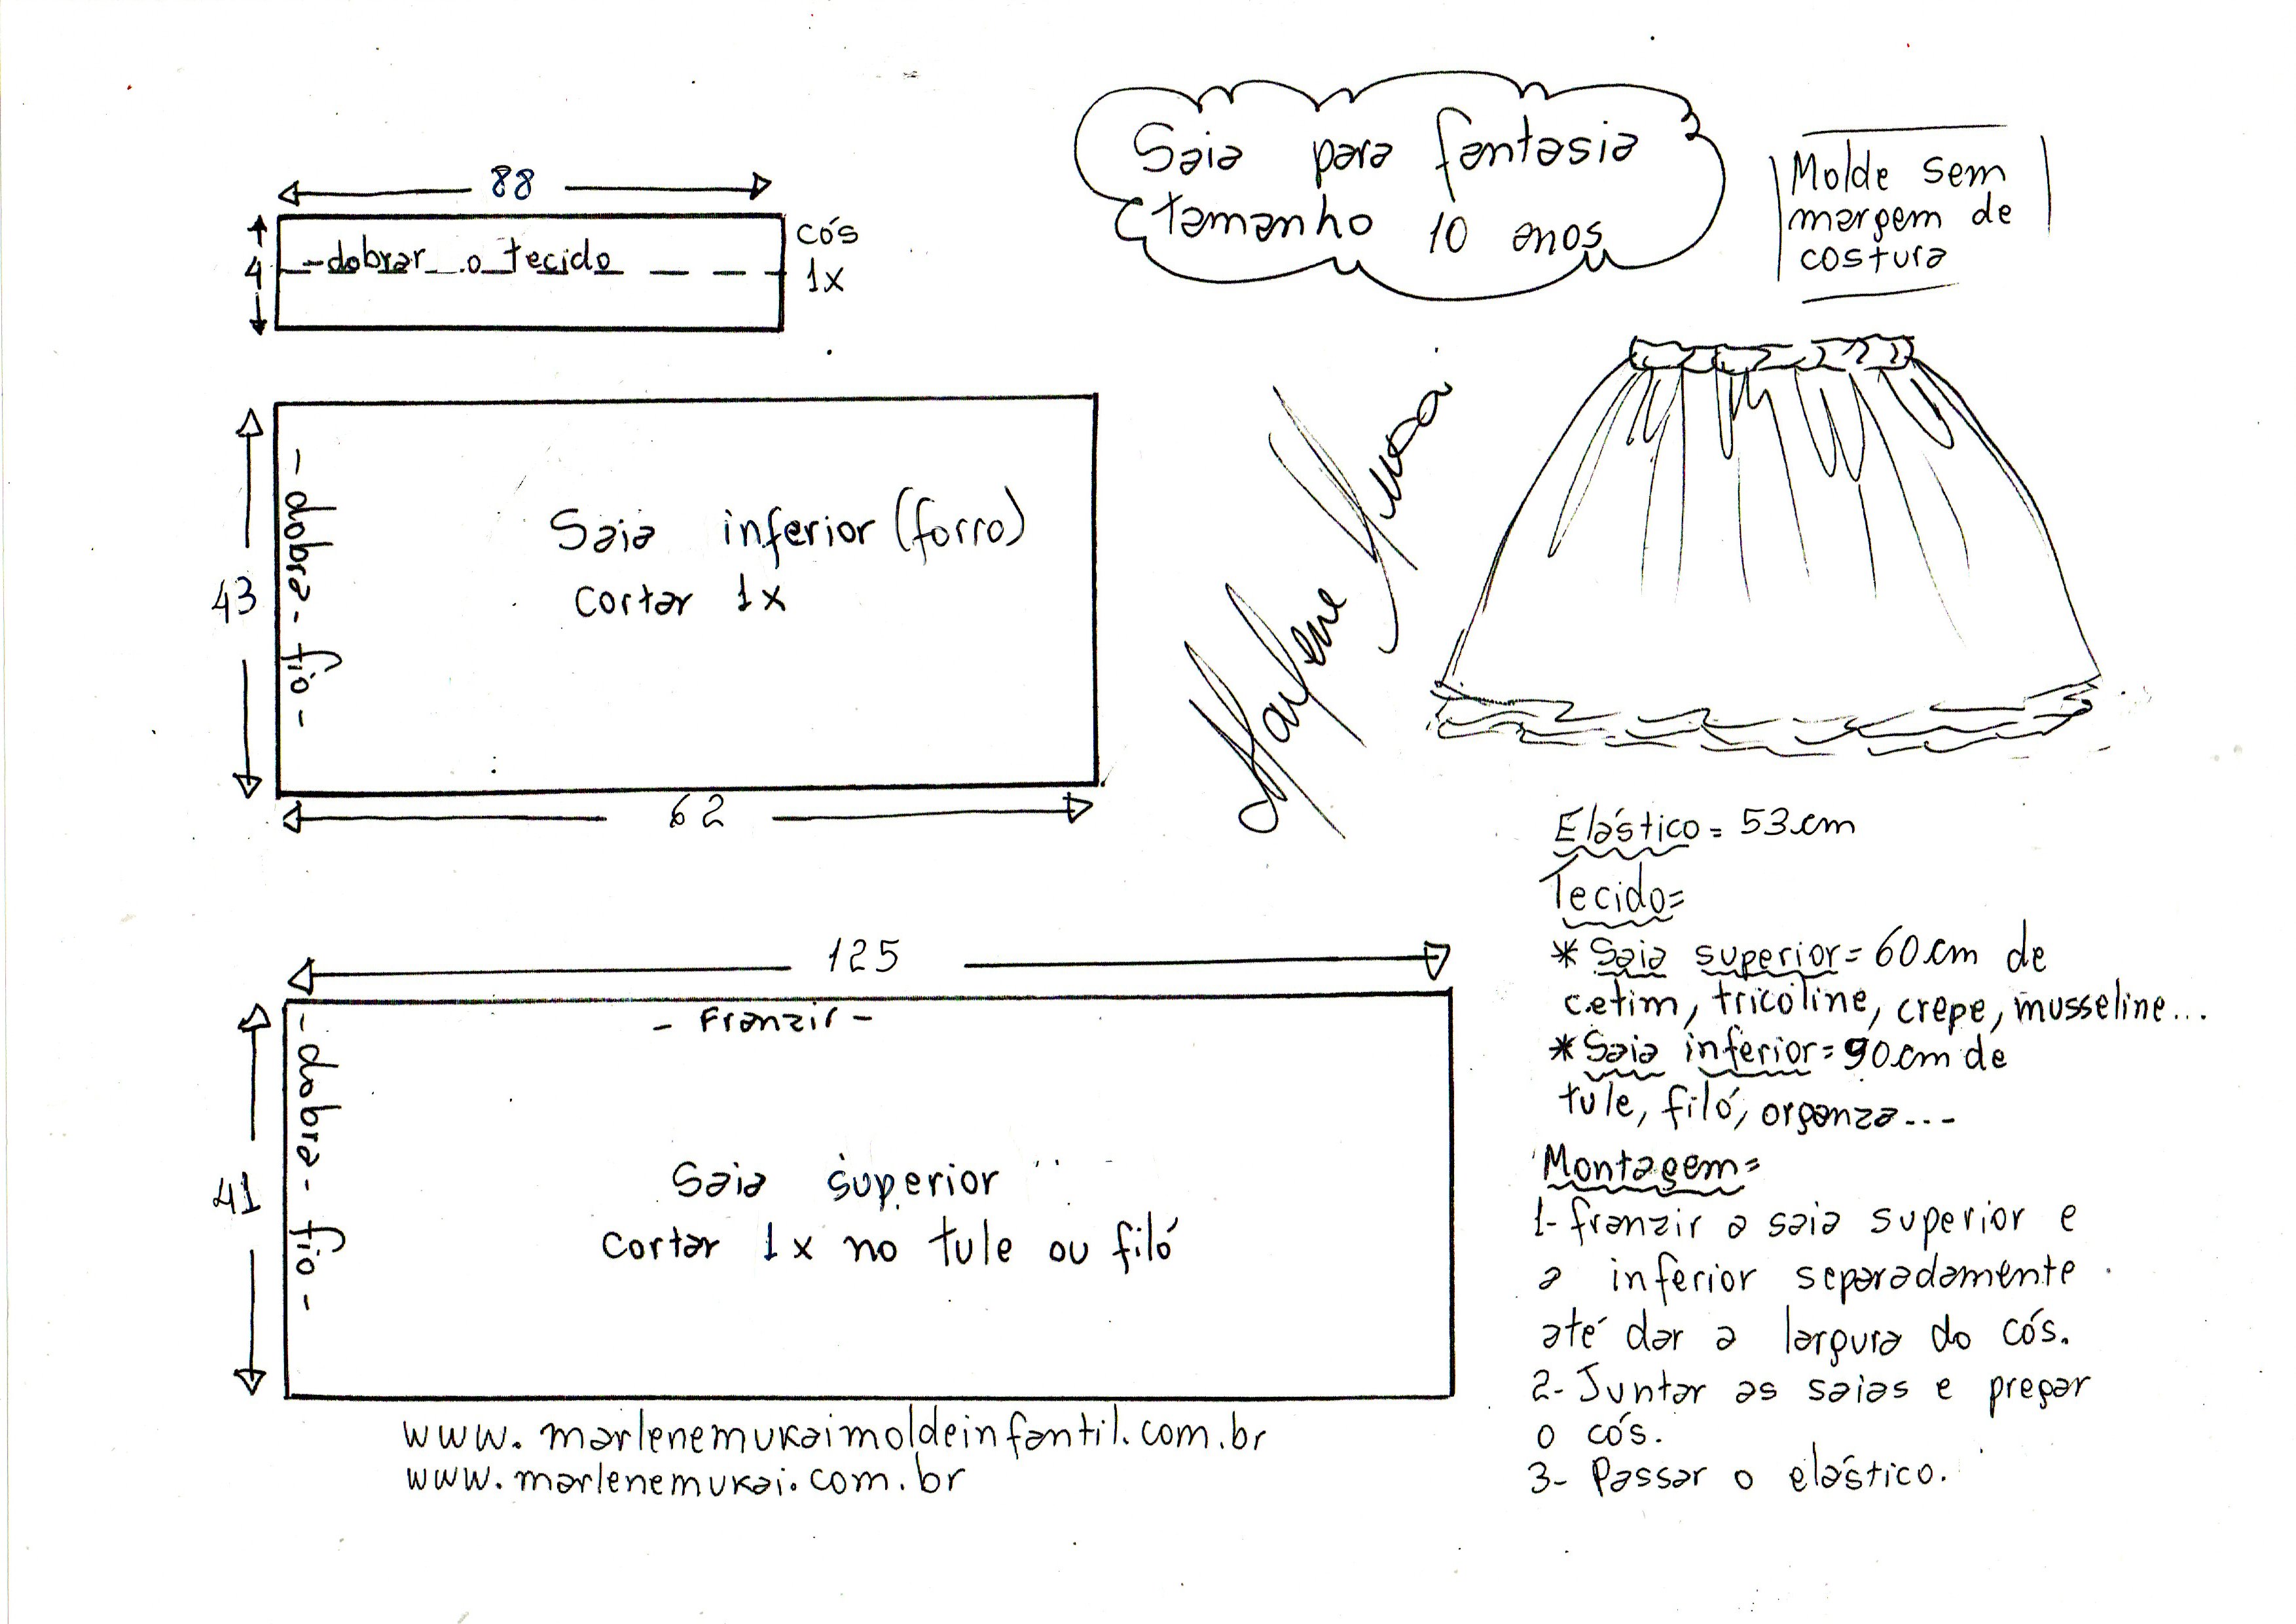 Saia para fantasia
tamanho 10 anos
Molde sem
margem de
costura
88
4
-dobrar o tecido
cós
1x
43
-dobra- fio -
Saia inferior (forro)
cortar 1x
62
125
- Franzir -
41
-dobra- fio -
Saia superior
cortar 1x no tule ou filó
www.marlenemukaimoldeinfantil.com.br
www.marlenemukai.com.br
Marlene
Elástico = 53cm
Tecido=
* Saia superior = 60cm de
cetim, tricoline, crepe, musseline...
* Saia inferior = 90cm de
tule, filó, organza...
Montagem=
1- franzir a saia superior e
a inferior separadamente
até dar a largura do cós.
2- Juntar as saias e pregar
o cós.
3- Passar o elástico.